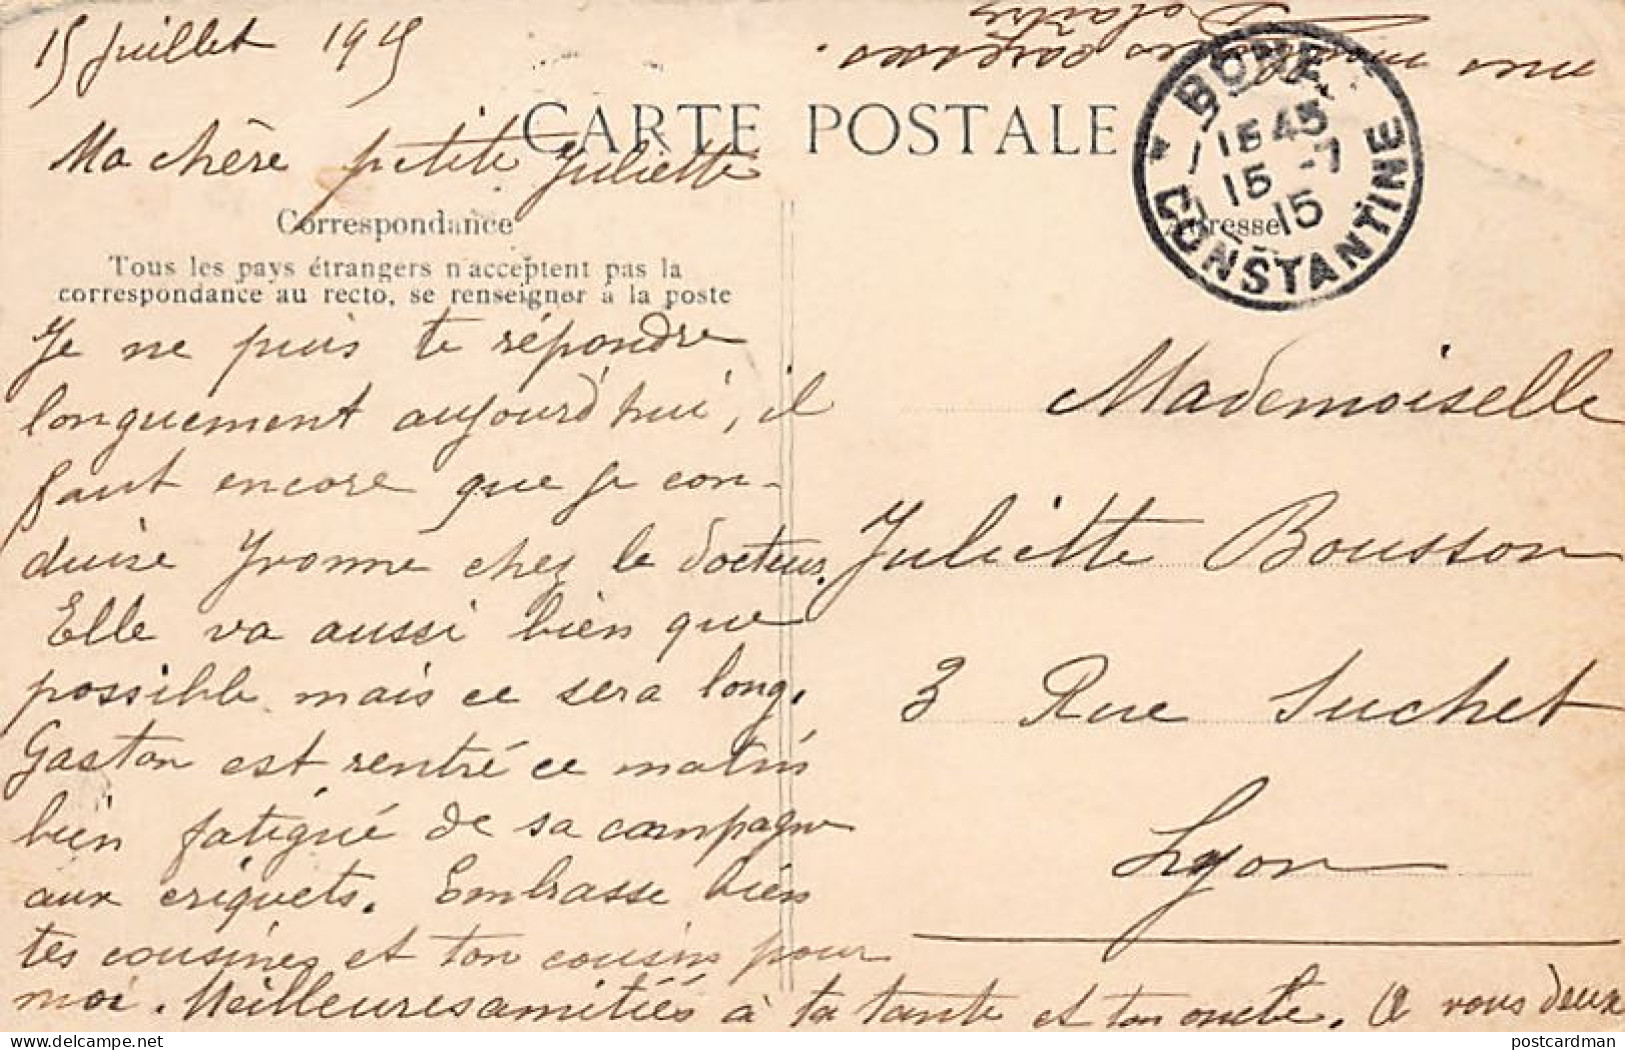 15 Juillet 1915
Ma chère petite Juliette
CARTE POSTALE
Correspondance
Tous les pays étrangers n'acceptent pas la
correspondance au recto, se renseigner à la poste
Je ne puis te répondre
longuement aujourd'hui, il
faut encore que je con-
duise Yvonne chez le docteur.
Elle va aussi bien que
possible mais ce sera long.
Gaston est rentré ce matin
bien fatigué de sa campagne
aux criquets. Embrasse bien
tes cousines et ton cousin pour
moi. Meilleures amitiés à ta tante et ton oncle. A vous deux
nos caresses.
BONE
CONSTANTINE
1545
15 -7
15
Adresse
Mademoiselle
Juliette Bousson
3 Rue Suchet
Lyon
postcardman